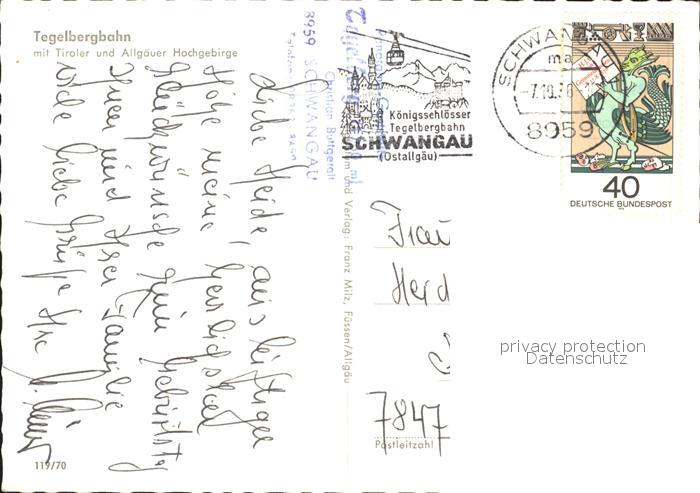 Tegelbergbahn
mit Tiroler und Allgäuer Hochgebirge
Liebe Heide, aus luftiger
Höhe meine herzlichsten
Glückwünsche zum Geburtstag
Ihnen und Ihrer Familie
viele liebe Grüße Ihr
119/70
Christian Buttgereit
8959 SCHWANGAU
und Verlag: Franz Milz, Füssen/Allgäu
Königsschlösser
Tegelbergbahn
SCHWANGAU
(Ostallgäu)
SCHWANGAU
ma
8959
40
DEUTSCHE BUNDESPOST
Frau
Herd
7847
Postleitzahl
privacy protection
Datenschutz